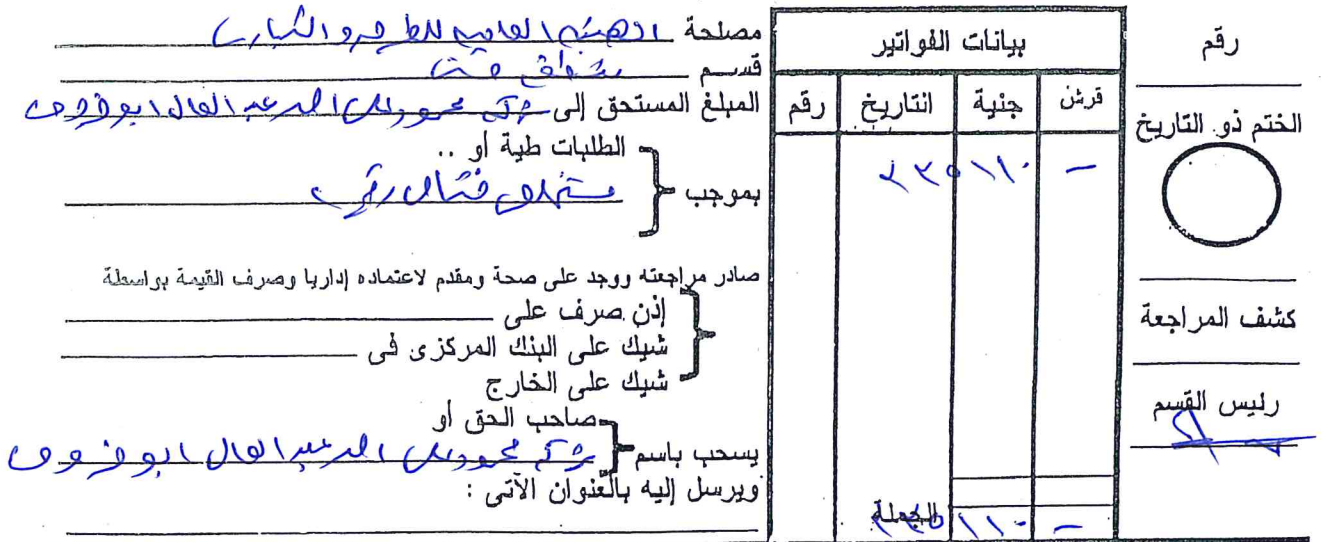 مصلحة الهيئة العامة للطرق والكباري
قسم
المبلغ المستحق إلى شركة محمود على احمد عبد العال ابو
الطلبات طية أو ..
بموجب مستخلص ختامى رقم
صادر مراجعته ووجد على صحة ومقدم لاعتماده إداريا وصرف القيمة بواسطة
إذن صرف على
شيك على البنك المركزى فى
شيك على الخارج
صاحب الحق أو
يسحب باسم شركة محمود على احمد عبد العال ابو
ويرسل إليه بالعنوان الآتى :
بيانات الفواتير
قرش جنية التاريخ رقم
- ٢٣٥١١٠
الجملة
- ٢٣٥١١٠
رقم
الختم ذو التاريخ
كشف المراجعة
رئيس القسم